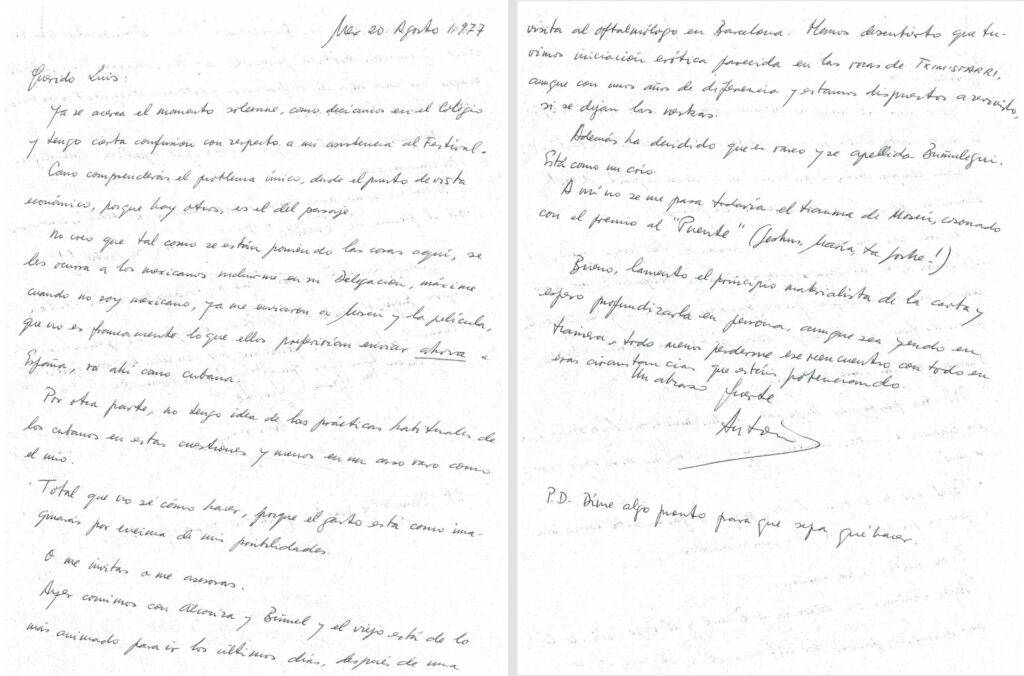 Mex 20 Agosto 1.977
Querido Luis:
Ya se acerca el momento solemne, como decíamos en el Colegio
y tengo cierta confusión con respecto a mi asistencia al Festival.
Como comprenderás el problema único, desde el punto de vista
económico, porque hay otros, es el del pasaje.
No creo que tal como se están poniendo las cosas aquí, se
les ocurra a los mexicanos incluirme en su Delegación, máxime
cuando no soy mexicano, ya me enviaron a Moscú y la película,
que no es francamente lo que ellos preferirían enviar ahora a
España, va ahí como cubana.
Por otra parte, no tengo idea de las prácticas habituales de
los cubanos en estas cuestiones y menos en un caso raro como
el mío.
Total que no sé cómo hacer, porque el gasto está como ima-
ginarás por encima de mis posibilidades.
O me invitas o me asesoras.
Ayer comimos con Alcoriza y Buñuel y el viejo está de lo
más animado para ir los últimos días, después de una
visita al oftalmólogo en Barcelona. Hemos descubierto que tu-
vimos iniciación erótica parecida en las rocas de
aunque con unos años de diferencia y estamos dispuestos a revivirlo,
si se dejan las vascas.
Además ha decidido que es vasco y se apellida Buñulegui.
Está como un crío.
A mí no se me pasa todavía el trauma de Moscú, coronado
con el premio al "Puente" (Jeshus, María, ta Joshe!)
Bueno, lamento el principio materialista de la carta y
espero profundizarla en persona, aunque sea yendo en
trainera, todo menos perderme ese reencuentro con todo en
esas circunstancias que están potenciando.
Un abrazo fuerte
Anton
P.D. Dime algo pronto para que sepa qué hacer.